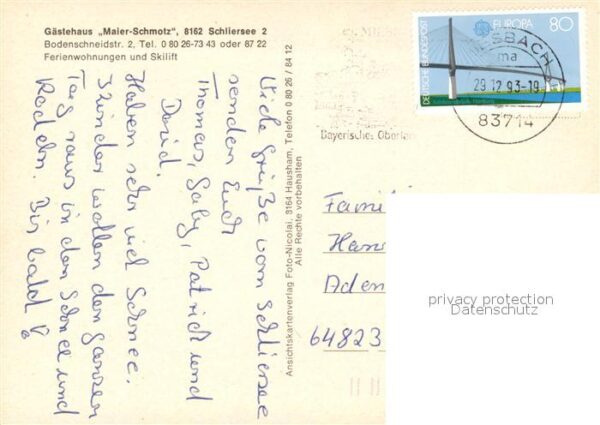 Gästehaus „Maier-Schmotz", 8162 Schliersee 2
Bodenschneidstr. 2, Tel. 0 80 26-73 43 oder 87 22
Ferienwohnungen und Skilift
Viele Grüße vom Schliersee
senden Euch
Thomas, Gaby, Patrick und
David.
Haben sehr viel Schnee.
Kinder wollen den ganzen
Tag raus in den Schnee und
Rodeln. Bis bald
Ansichtskartenverlag Foto-Nicolai, 8164 Hausham, Telefon 0 80 26 / 84 12
Alle Rechte vorbehalten
DEUTSCHE BUNDESPOST
EUROPA
80
SBACH
ma
29.12.93-19
83714
Bayerisches Oberlan
Famil
Han
Aden
64823
privacy protection
Datenschutz